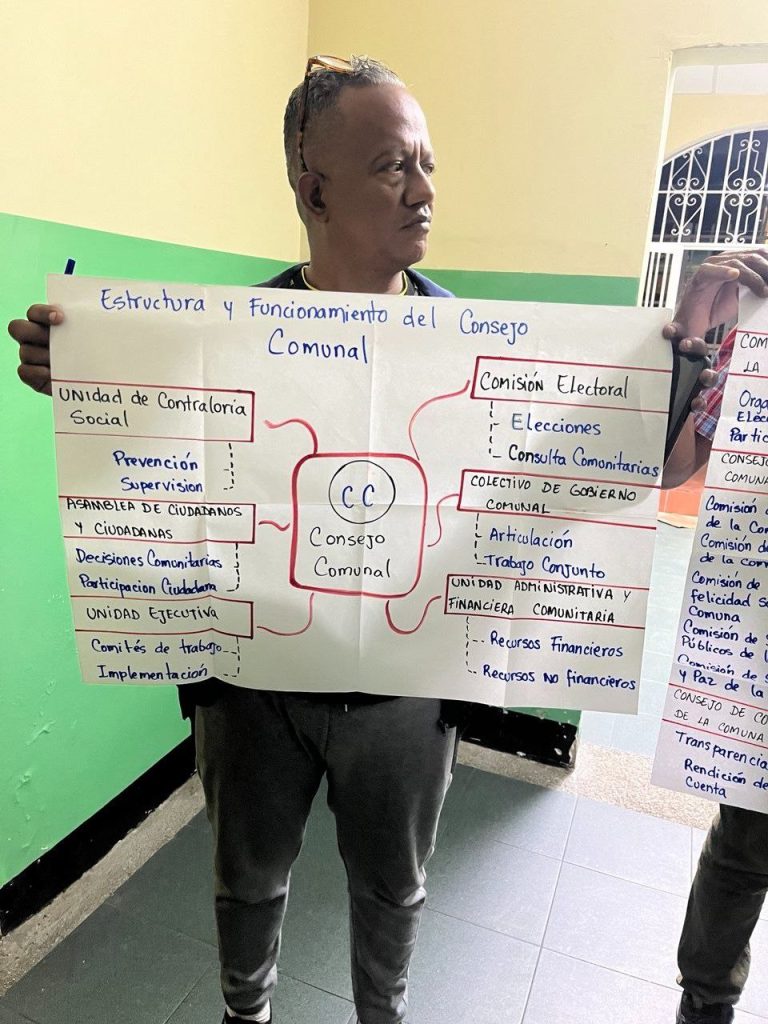 Estructura y Funcionamiento del Consejo
Comunal
Unidad de Contraloría
Social
Prevención
Supervision
ASAMBLEA DE CIUDADANOS
Y CIUDADANAS
Decisiones Comunitarias
Participacion Ciudadana
UNIDAD EJECUTIVA
Comités de trabajo
Implementación
CC
Consejo
Comunal
Comisión Electoral
Elecciones
Consulta Comunitarias
COLECTIVO DE GOBIERNO
COMUNAL
Articulación
Trabajo Conjunto
UNIDAD ADMINISTRATIVA Y
FINANCIERA COMUNITARIA
Recursos Financieros
Recursos no financieros
COM
LA
Orga
Elec
Partic
CONSEJO
COMUNA
Comisión
de la Co
Comisión de
de la com
Comisión de
felicidad s
Comuna
Comisión de
Públicos de l
Comisión de
y Paz de la
CONSEJO DE CO
DE LA COMUNA
Transparencia
Rendición de
Cuenta